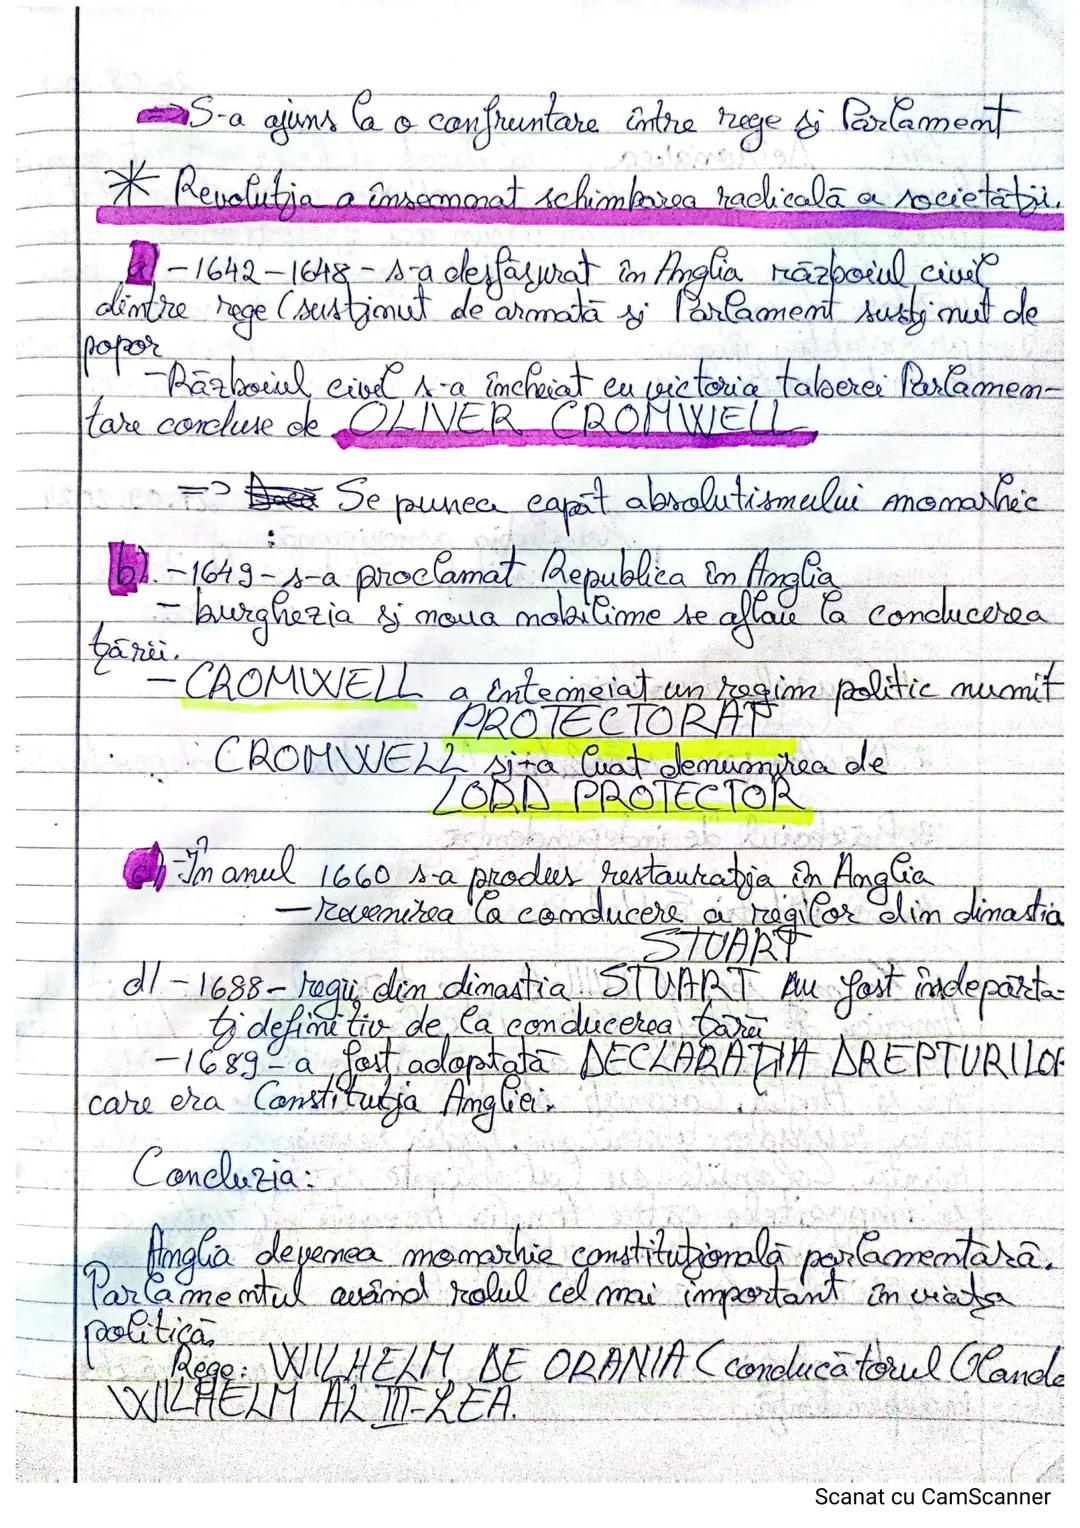 => S-a ajuns la o confruntare între rege și Parlament
* Revoluția a însemnat schimbarea radicală a societății.
a) - 1642 - 1648 - s-a desfășurat în Anglia războiul civil
dintre rege (susținut de armată și Parlament susținut de
popor
- Războiul civil s-a încheiat cu victoria taberei Parlamen-
tare conduse de OLIVER CROMWELL
=> Se punea capăt absolutismului monarhic
:
b). - 1649 - s-a proclamat Republica în Anglia
- burghezia și noua nobilime se aflau la conducerea
țării.
- CROMWELL a întemeiat un regim politic numit
PROTECTORAT
CROMWELL și-a luat denumirea de
LORD PROTECTOR
c) - În anul 1660 s-a produs restaurația în Anglia
- Revenirea la conducere a regilor din dinastia
STUART
d) - 1688 - regii din dinastia STUART au fost îndepărta-
ți definitiv de la conducerea țării
- 1689 - a fost adoptată DECLARAȚIA DREPTURILOR
care era Constituția Angliei.
Concluzia:
Anglia devenea monarhie constituțională parlamentară.
Parlamentul având rolul cel mai important în viața
politică.
Rege: WILHELM DE ORANIA (conducătorul Olande
WILHELM AL III-LEA.
Scanat cu CamScanner